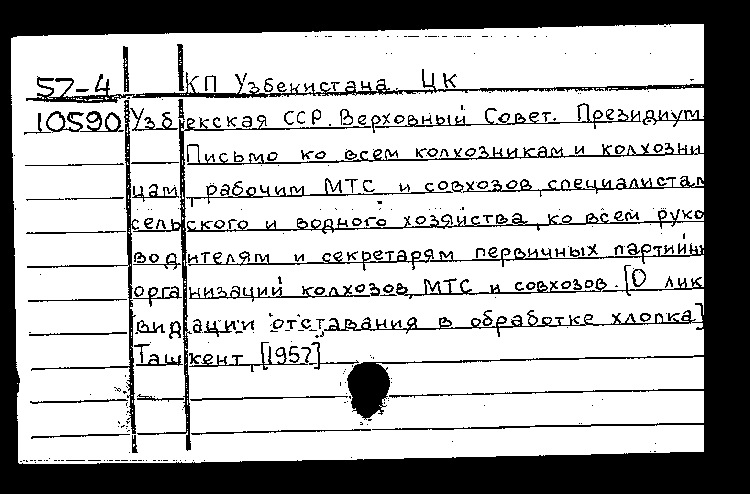 57-4 КП Узбекистана. ЦК
10590 Узбекская ССР. Верховный Совет. Президиум
Письмо ко всем колхозникам и колхозни
цам, рабочим МТС и совхозов, специалистам
сельского и водного хозяйства, ко всем руко
водителям и секретарям первичных партийн
организаций колхозов, МТС и совхозов. [О лик
видации отставания в обработке хлопка]
Ташкент, [1957]